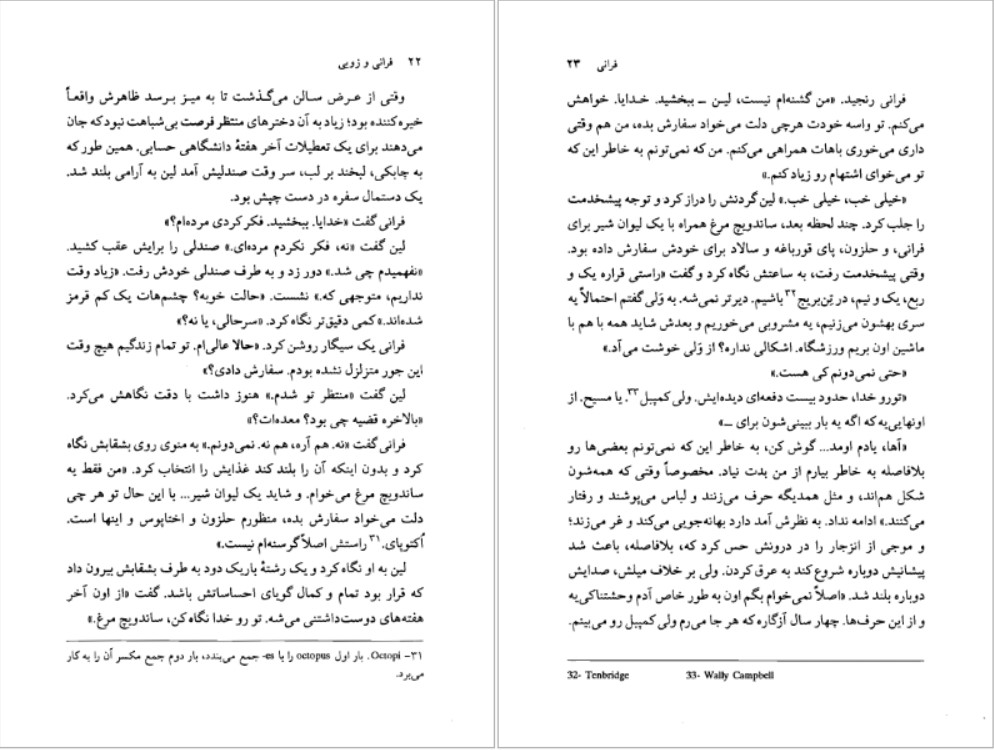 ۲۲ فرانی و زویی
وقتی از عرض سالن می‌گذشت تا به میز برسد ظاهرش واقعاً
خیره‌کننده بود؛ زیاد به آن دخترهای منتظر فرصت بی‌شباهت نبود که جان
می‌دهند برای یک تعطیلات آخر هفتهٔ دانشگاهی حسابی. همین طور که
به چابکی، لبخند بر لب، سر وقت صندلیش آمد لین به آرامی بلند شد.
یک دستمال سفره در دست چپش بود.
فرانی گفت «خدایا. ببخشید. فکر کردی مرده‌ام؟»
لین گفت «نه، فکر نکردم مرده‌ای.» صندلی را برایش عقب کشید.
«نفهمیدم چی شد.» دور زد و به طرف صندلی خودش رفت. «زیاد وقت
نداریم، متوجهی که.» نشست. «حالت خوبه؟ چشم‌هات یک کم قرمز
شده‌اند.» کمی دقیق‌تر نگاه کرد. «سرحالی، یا نه؟»
فرانی یک سیگار روشن کرد. «حالا عالی‌ام. تو تمام زندگیم هیچ وقت
این جور متزلزل نشده بودم. سفارش دادی؟»
لین گفت «منتظر تو شدم.» هنوز داشت با دقت نگاهش می‌کرد.
«بالاخره قضیه چی بود؟ معده‌ات؟»
فرانی گفت «نه. هم آره، هم نه. نمی‌دونم.» به منوی روی بشقابش نگاه
کرد و بدون اینکه آن را بلند کند غذایش را انتخاب کرد. «من فقط یه
ساندویچ مرغ می‌خوام. و شاید یک لیوان شیر... با این حال تو هر چی
دلت می‌خواد سفارش بده، منظورم حلزون و اختاپوس و اینها است.
اُکتوپای.۳۱ راستش اصلاً گرسنه‌ام نیست.»
لین به او نگاه کرد و یک رشتهٔ باریک دود به طرف بشقابش بیرون داد
که قرار بود تمام و کمال گویای احساساتش باشد. گفت «از اون آخر
هفته‌های دوست‌داشتنی می‌شه. تو رو خدا نگاه کن، ساندویچ مرغ.»
۳۱– Octopi. بار اول octopus را با es- جمع می‌بندد، بار دوم جمع مکسر آن را به کار
می‌برد.
فرانی ۲۳
فرانی رنجید. «من گشنه‌ام نیست، لین ــ ببخشید. خدایا. خواهش
می‌کنم. تو واسه خودت هرچی دلت می‌خواد سفارش بده، من هم وقتی
داری می‌خوری باهات همراهی می‌کنم. من که نمی‌تونم به خاطر این که
تو می‌خوای اشتهام رو زیاد کنم.»
«خیلی خب، خیلی خب.» لین گردنش را دراز کرد و توجه پیشخدمت
را جلب کرد. چند لحظه بعد، ساندویچ مرغ همراه با یک لیوان شیر برای
فرانی، و حلزون، پای قورباغه و سالاد برای خودش سفارش داده بود.
وقتی پیشخدمت رفت، به ساعتش نگاه کرد و گفت «راستی قراره یک و
ربع، یک و نیم، در تِن‌بریج۳۲ باشیم. دیرتر نمی‌شه. به وَلی گفتم احتمالاً یه
سری بهشون می‌زنیم، یه مشروبی می‌خوریم و بعدش شاید همه با هم با
ماشین اون بریم ورزشگاه. اشکالی نداره؟ از وَلی خوشت می‌آد.»
«حتی نمی‌دونم کی هست.»
«تورو خدا، حدود بیست دفعه‌ای دیده‌ایش. ولی کمپبل۳۳. یا مسیح. از
اونهایی‌یه که اگه یه بار ببینی‌شون برای ــ»
«آها، یادم اومد... گوش کن، به خاطر این که نمی‌تونم بعضی‌ها رو
بلافاصله به خاطر بیارم از من بدت نیاد. مخصوصاً وقتی که همه‌شون
شکل هم‌اند، و مثل همدیگه حرف می‌زنند و لباس می‌پوشند و رفتار
می‌کنند.» ادامه نداد. به نظرش آمد دارد بهانه‌جویی می‌کند و غر می‌زند؛
و موجی از انزجار را در درونش حس کرد که، بلافاصله، باعث شد
پیشانیش دوباره شروع کند به عرق کردن. ولی بر خلاف میلش، صدایش
دوباره بلند شد. «اصلاً نمی‌خوام بگم اون به طور خاص آدم وحشتناکی‌یه
و از این حرف‌ها. چهار سال آزگاره که هر جا می‌رم ولی کمپبل رو می‌بینم.
32- Tenbridge 33- Wally Campbell